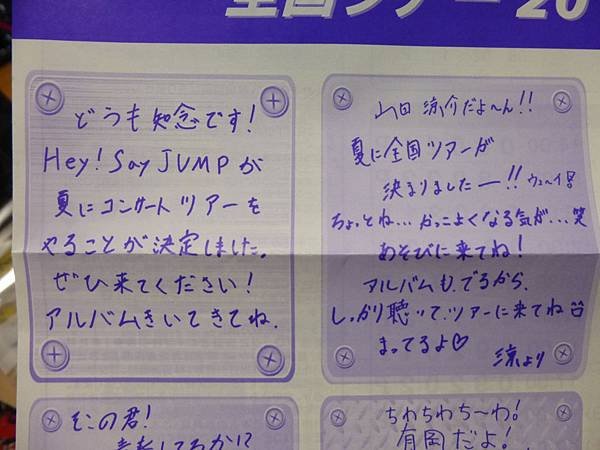 全国ツアー20
どうも知念です!
Hey! Say JUMPが
夏にコンサートツアーを
やることが決定しました。
ぜひ来てください!
アルバムきいてきてね。
山田涼介だよ〜ん!!
夏に全国ツアーが
決まりましたー!!
ちょっとね…かっこよくなる気が…笑
あそびに来てね!
アルバムも、でるから、
しっかり聴いて、ツアーに来てね
まってるよ♡
涼より
そこの君!
ちわちわち〜わ!
有岡だよ!